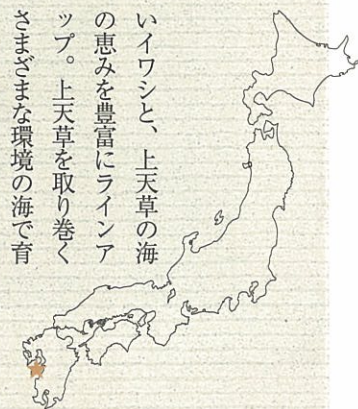 いイワシと、上天草の海
の恵みを豊富にラインア
ップ。上天草を取り巻く
さまざまな環境の海で育